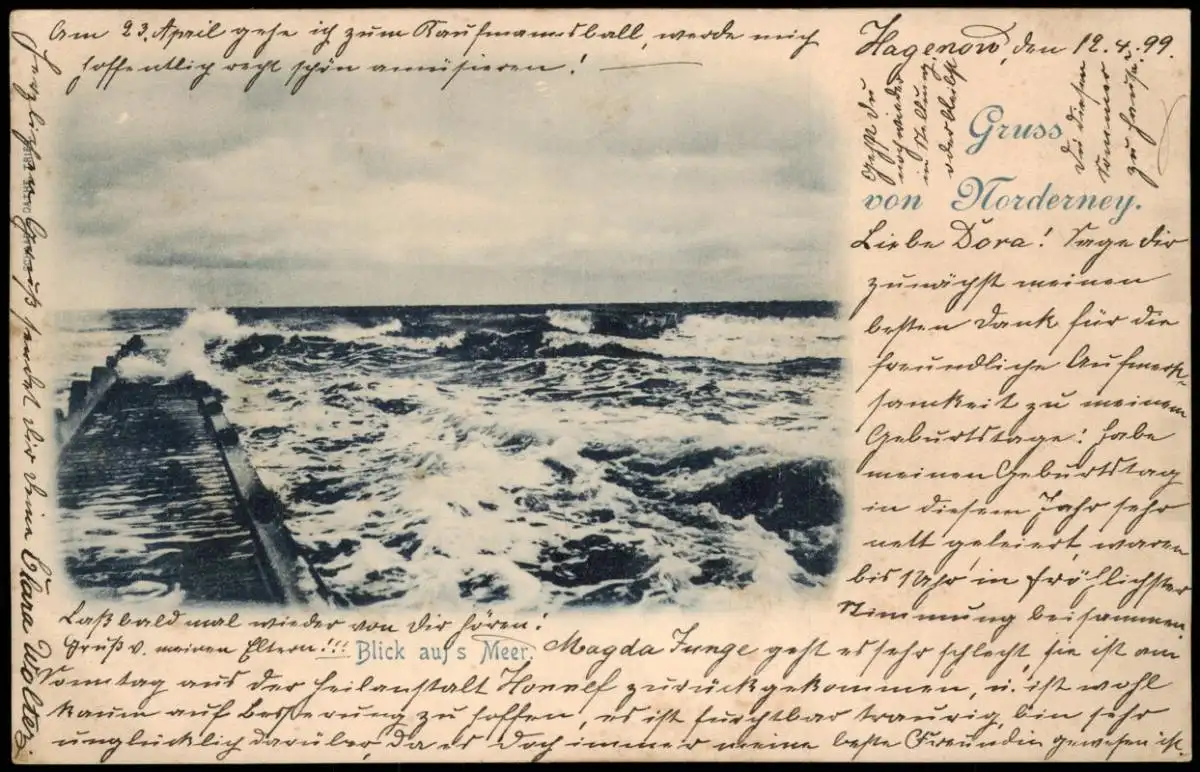 Hagenow, den 12.4.99.
Gruss
von Norderney.
Liebe Dora! Sage dir
zunächst meinen
besten Dank für die
freundliche Aufmerk-
samkeit zu meinem
Geburtstage! habe
meinen Geburtstag
in diesem Jahr sehr
nett gefeiert, waren
bis 1 Uhr in fröhlichster
Stimmung beisammen.
Magda Junge geht es sehr schlecht, sie ist am
Sonntag aus der Heilanstalt Honnef zurückgekommen, u. ist wohl
kaum auf Besserung zu hoffen, es ist furchtbar traurig, bin sehr
unglücklich darüber, da es doch immer meine beste Freundin gewesen ist.
Am 23. April gehe ich zum Kaufmannsball, werde mich
hoffentlich recht schön amüsieren!
Gehst du
noch wieder
in Stellung,
oder bleibst
du diesen
Sommer
zu hause?
Laß bald mal wieder von dir hören!
Gruß v. meinen Eltern!!!
Blick auf's Meer.
Herzlichen Gruß sendet dir deine Clara Wolter.